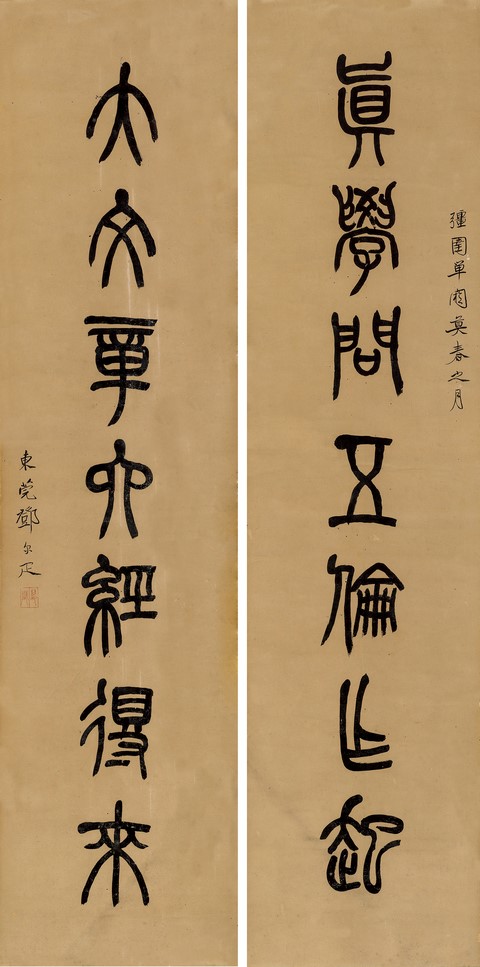 眞學問五倫乍起
彊圉單閼莫春之月
大文章六經得來
東莞鄧尔疋